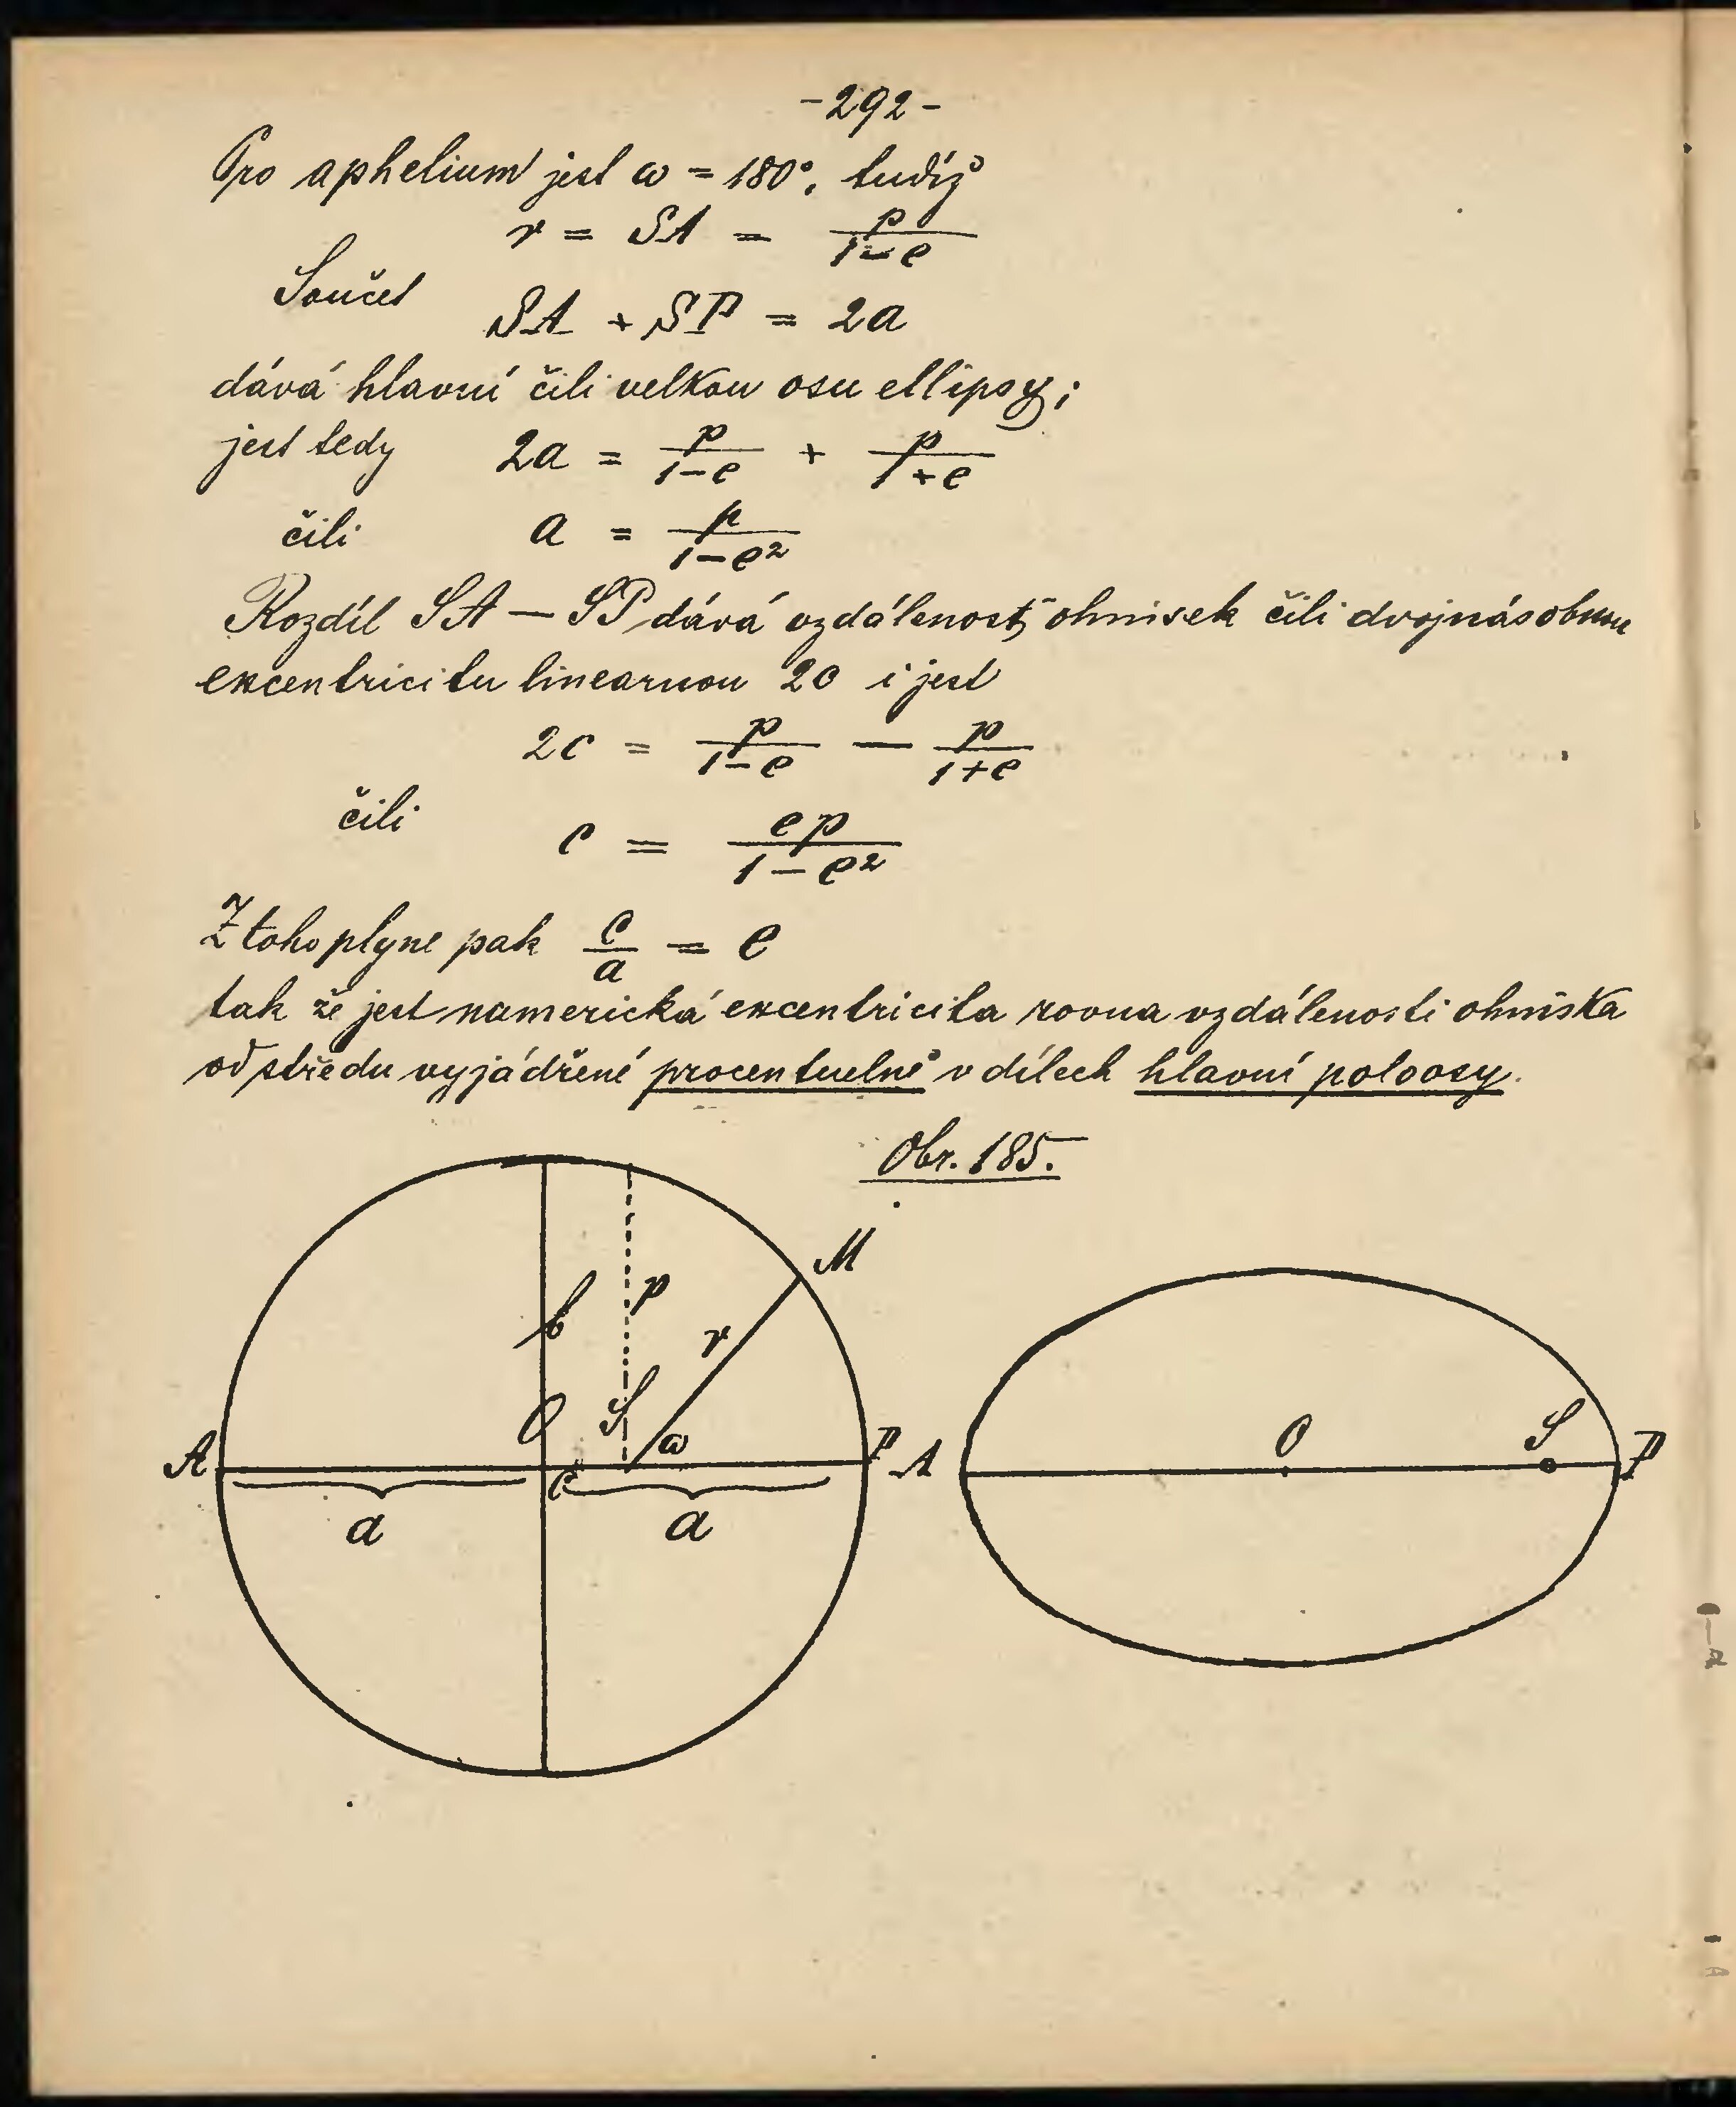 -292-
Pro aphelium jest ω = 180°, tudíž
r = SA = p/(1-e)
Součet
SA + SP = 2a
dává hlavní čili velkou osu ellipsy;
jest tedy 2a = p/(1-e) + p/(1+e)
čili a = p/(1-e²)
Rozdíl SA — SP dává vzdálenost ohnisek čili dvojnásobnou
excentricitu linearnou 2c i jest
2c = p/(1-e) — p/(1+e)
čili
c = ep/(1-e²)
Z toho plyne pak c/a = e
tak že jest numerická excentricita rovna vzdálenosti ohniska
od středu vyjádřené procentuelně v dílech hlavní poloosy.
Obr. 185.
M
b p
r
O S
ω
A P A O S P
c
a a